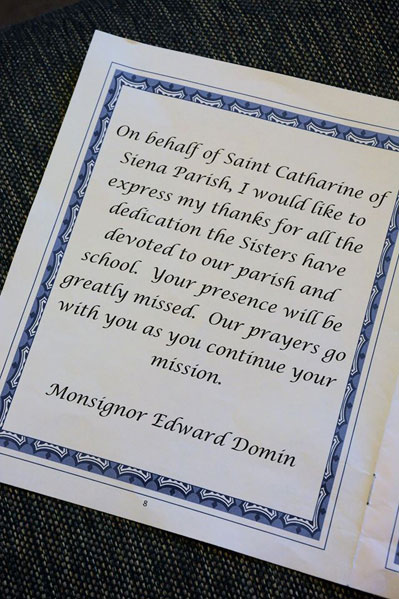 On behalf of Saint Catharine of
Siena Parish, I would like to
express my thanks for all the
dedication the Sisters have
devoted to our parish and
school. Your presence will be
greatly missed. Our prayers go
with you as you continue your
mission.
Monsignor Edward Domin
8